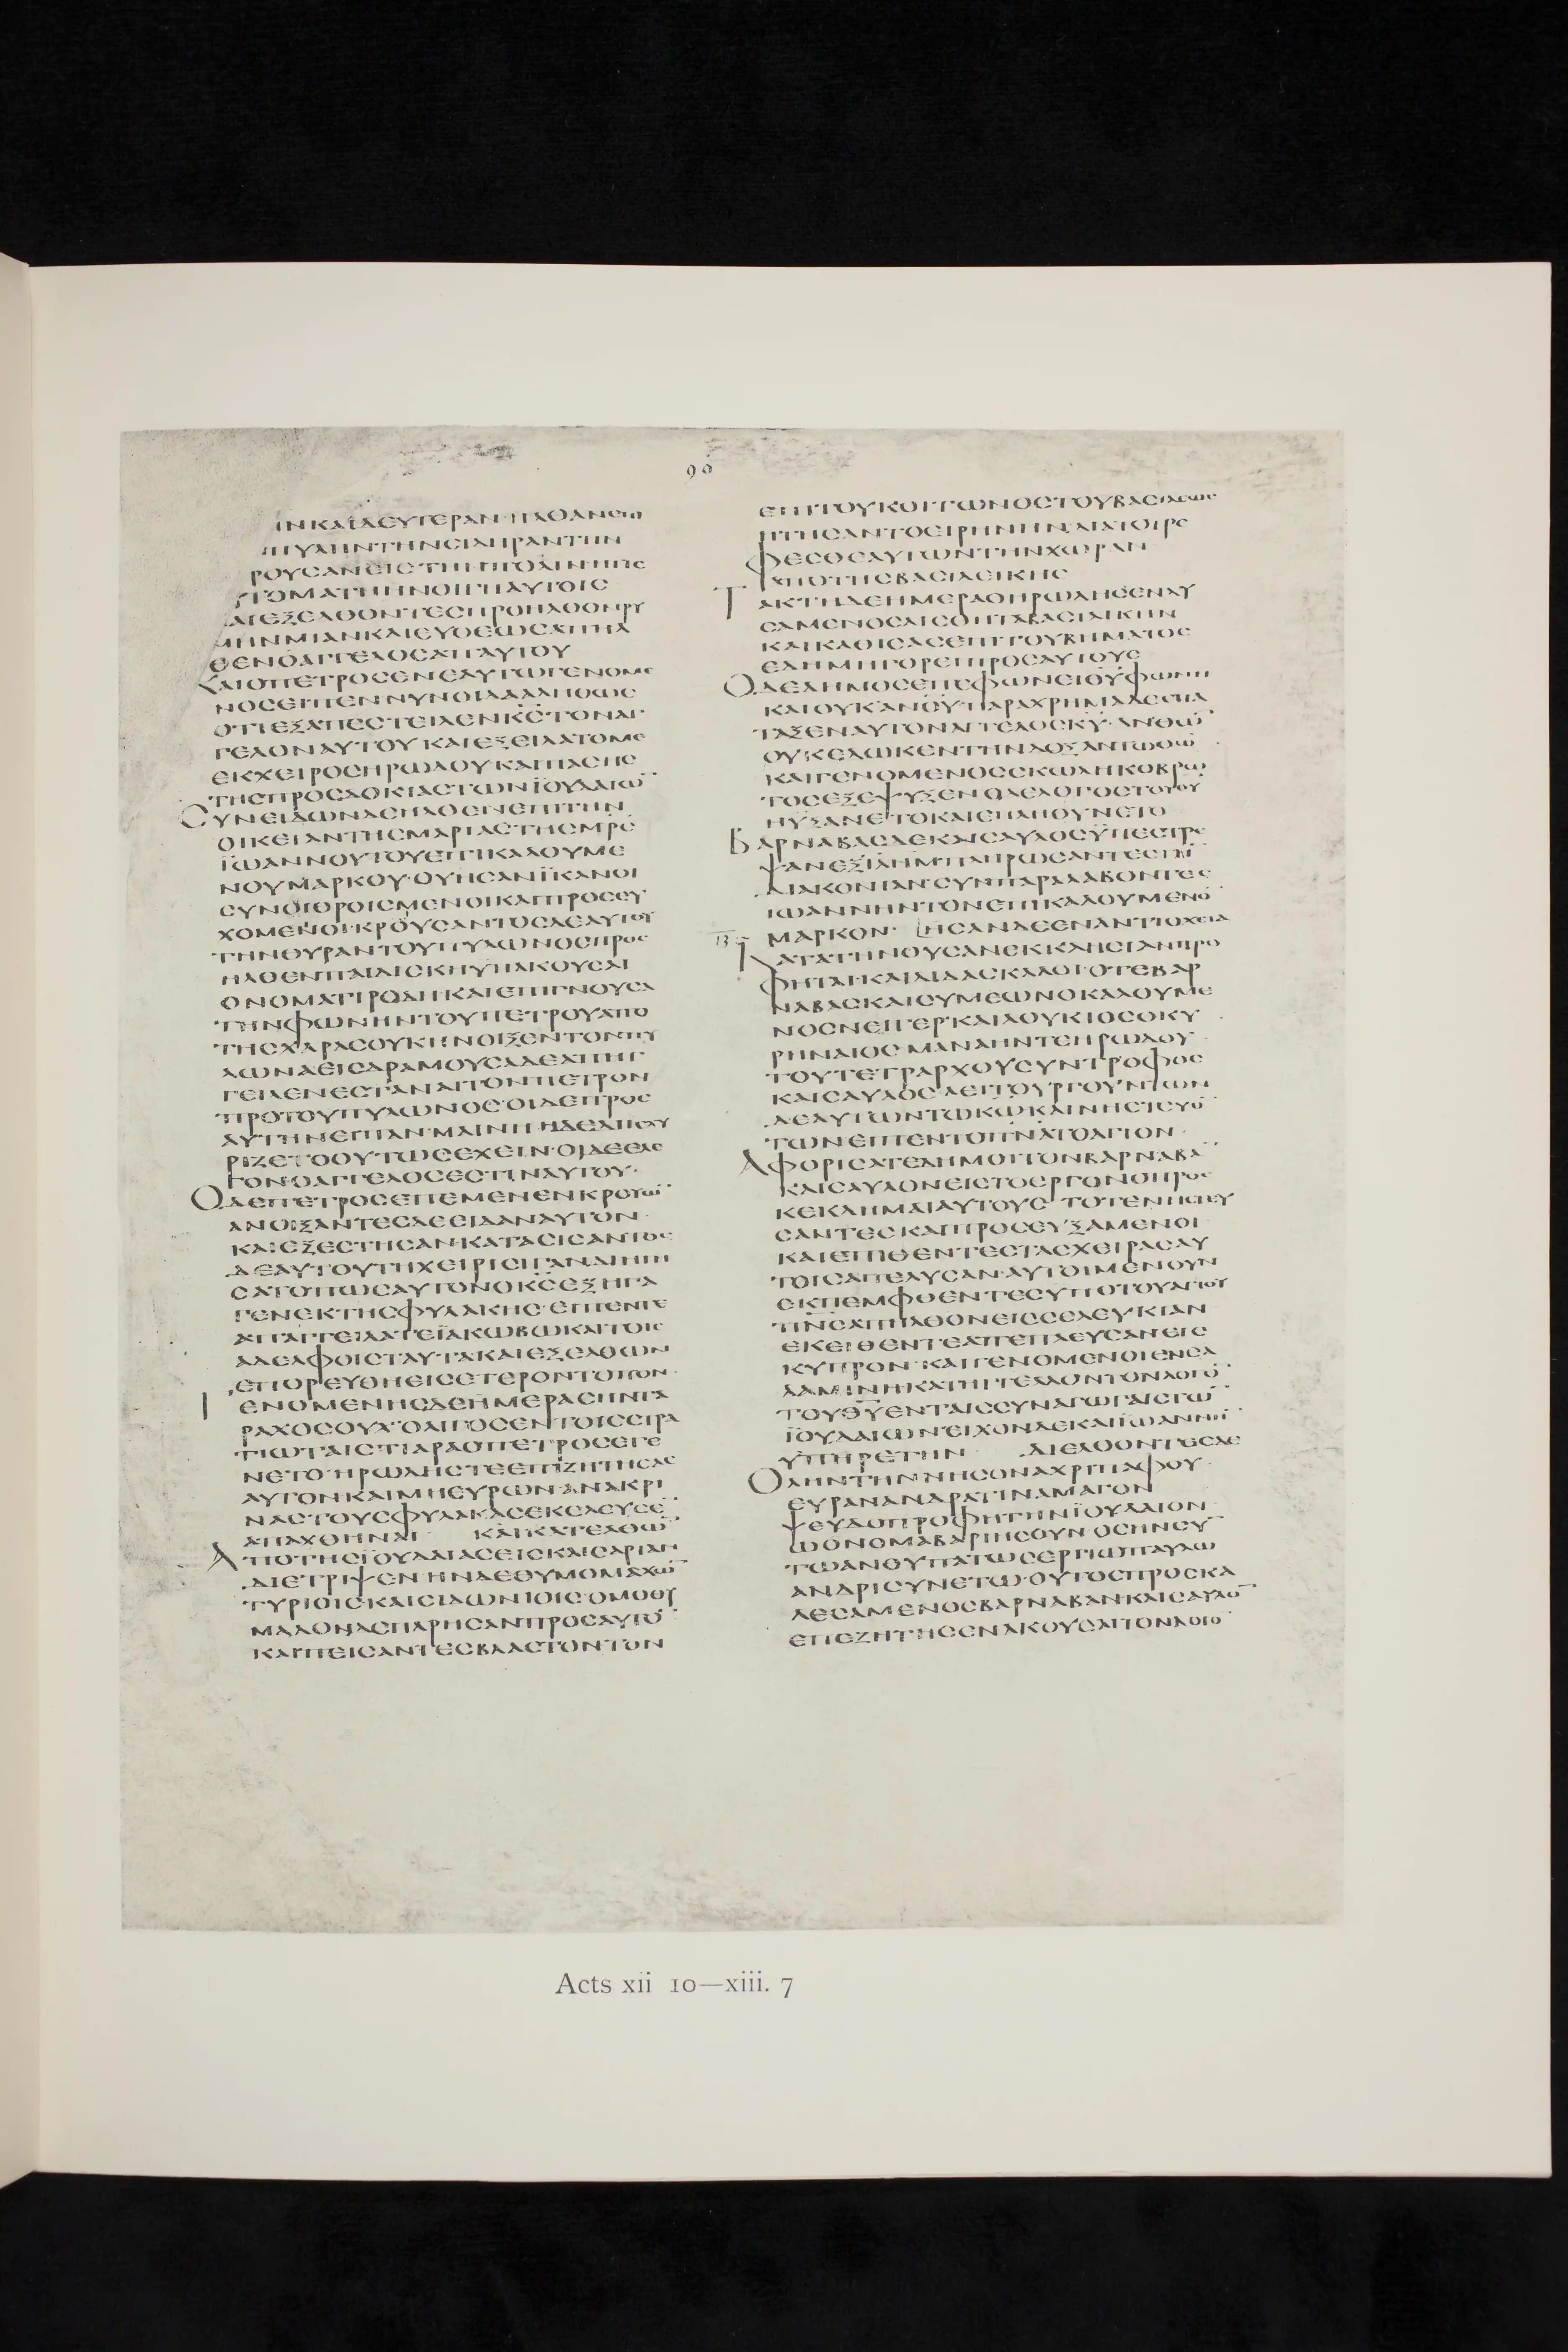 90
ΙΝΚΑΙΔΕΥΤΕΡΑΝ·ΗΛΘΑΝΕΠΙ
ΠΥΛΗΝΤΗΝCΙΔΗΡΑΝΤΗΝ
ΡΟΥCΑΝΕΙCΤΗΝΠΟΛΙΝΗΤΙC
ΥΤΟΜΑΤΗΗΝΟΙΓΗΑΥΤΟΙC
ΑΙΕΞΕΛΘΟΝΤΕCΠΡΟΗΛΘΟΝΡΥ
ΜΗΝΜΙΑΝΚΑΙΕΥΘΕΩCΑΠΗΛ
ΘΕΝΟΑΓΓΕΛΟCΑΠΑΥΤΟΥ
ΚΑΙΟΠΕΤΡΟCΕΝΕΑΥΤΩΓΕΝΟΜΕ
ΝΟCΕΙΠΕΝΝΥΝΟΙΔΑΑΛΗΘΩC
ΟΤΙΕΞΑΠΕCΤΕΙΛΕΝΚ̅C̅ΤΟΝΑΓ
ΓΕΛΟΝΑΥΤΟΥΚΑΙΕΞΕΙΛΑΤΟΜΕ
ΕΚΧΕΙΡΟCΗΡΩΔΟΥΚΑΙΠΑCΗC
ΤΗCΠΡΟCΔΟΚΙΑCΤΩΝΪΟΥΔΑΙΩ̅
CΥΝΕΙΔΩΝΔΕΗΛΘΕΝΕΠΙΤΗΝ
ΟΙΚΕΙΑΝΤΗCΜΑΡΙΑCΤΗCΜ̅Ρ̅C̅
ΪΩΑΝΝΟΥΤΟΥΕΠΙΚΑΛΟΥΜΕ
ΝΟΥΜΑΡΚΟΥ·ΟΥΗCΑΝΪΚΑΝΟΙ
CΥΝΗΘΡΟΙCΜΕΝΟΙΚΑΙΠΡΟCΕΥ
ΧΟΜΕΝΟΙ·ΚΡΟΥCΑΝΤΟCΔΕΑΥΤΟΥ
ΤΗΝΘΥΡΑΝΤΟΥΠΥΛΩΝΟCΠΡΟC
ΗΛΘΕΝΠΑΙΔΙCΚΗΥΠΑΚΟΥCΑΙ
ΟΝΟΜΑΤΙΡΟΔΗ·ΚΑΙΕΠΙΓΝΟΥCΑ
ΤΗΝΦΩΝΗΝΤΟΥΠΕΤΡΟΥΑΠΟ
ΤΗCΧΑΡΑCΟΥΚΗΝΟΙΞΕΝΤΟΝΠΥ
ΛΩΝΑΕΙCΔΡΑΜΟΥCΑΔΕΑΠΗΓ
ΓΕΙΛΕΝΕCΤΑΝΑΙΤΟΝΠΕΤΡΟΝ
ΠΡΟΤΟΥΠΥΛΩΝΟC·ΟΙΔΕΠΡΟC
ΑΥΤΗΝΕΙΠΑΝ·ΜΑΙΝΗ·ΗΔΕΔΙΙCΧΥ
ΡΙΖΕΤΟΟΥΤΩCΕΧΕΙΝ·ΟΙΔΕΕΛΕ
ΓΟΝ·ΟΑΓΓΕΛΟCΕCΤΙΝΑΥΤΟΥ·
ΟΔΕΠΕΤΡΟCΕΠΕΜΕΝΕΝΚΡΟΥΩ̅
ΑΝΟΙΞΑΝΤΕCΔΕΕΙΔΑΝΑΥΤΟΝ
ΚΑΙΕΞΕCΤΗCΑΝ·ΚΑΤΑCΙCΑΝΤΟC
ΔΕΑΥΤΟΥΤΗΧΕΙΡΙCΙΓΑΝΔΙΗΓΗ
CΑΤΟΠΩCΑΥΤΟΝΟΚ̅C̅ΕΞΗΓΑ
ΓΕΝΕΚΤΗCΦΥΛΑΚΗC·ΕΙΠΕΝΤΕ
ΑΠΑΓΓΕΙΛΑΤΕΪΑΚΩΒΩΚΑΙΤΟΙC
ΑΔΕΛΦΟΙCΤΑΥΤΑΚΑΙΕΞΕΛΘΩΝ
ΕΠΟΡΕΥΘΗΕΙCΕΤΕΡΟΝΤΟΠΟΝ
ΓΕΝΟΜΕΝΗCΔΕΗΜΕΡΑCΗΝΤΑ
ΡΑΧΟCΟΥΧΟΛΙΓΟCΕΝΤΟΙCCΤΡΑ
ΤΙΩΤΑΙCΤΙΑΡΑΟΠΕΤΡΟCΕΓΕ
ΝΕΤΟ·ΗΡΩΔΗCΤΕΕΠΙΖΗΤΗCΑC
ΑΥΤΟΝ·ΚΑΙΜΗΕΥΡΩΝ·ΑΝΑΚΡΙ
ΝΑCΤΟΥCΦΥΛΑΚΑCΕΚΕΛΕΥCΕ̅
ΑΠΑΧΘΗΝΑΙ ΚΑΙΚΑΤΕΛΘΩ̅
ΑΠΟΤΗCΪΟΥΔΑΙΑCΕΙCΚΑΙCΑΡΙΑΝ
ΔΙΕΤΡΙΨΕΝ·ΗΝΔΕΘΥΜΟΜΑΧΩ̅
ΤΥΡΙΟΙCΚΑΙCΙΔΩΝΙΟΙC·ΟΜΟΘΥ
ΜΑΔΟΝΔΕΠΑΡΗCΑΝΠΡΟCΑΥΤΟ̅
ΚΑΙΠΕΙCΑΝΤΕCΒΛΑCΤΟΝΤΟΝ
ΕΠΙΤΟΥΚΟΙΤΩΝΟCΤΟΥΒΑCΙΛΕΩC
ΗΤΗCΑΝΤΟΕΙΡΗΝΗΝ·ΔΙΑΤΟΤΡΕ
ΦΕCΘΕΑΥΤΩΝΤΗΝΧΩΡΑΝ
ΑΠΟΤΗCΒΑCΙΛΕΙΚΗC
ΤΑΚΤΗΔΕΗΜΕΡΑΟΗΡΩΔΗCΕΝΔΥ
CΑΜΕΝΟCΑΙCΘΗΤΑΒΑCΙΛΙΚΗΝ
ΚΑΙΚΑΘΙCΑCΕΠΙΤΟΥΒΗΜΑΤΟC
ΕΔΗΜΗΓΟΡΕΙΠΡΟCΑΥΤΟΥC
ΟΔΕΔΗΜΟCΕΠΕΦΩΝΕΙΘ̅Υ̅ΦΩΝΗ
ΚΑΙΟΥΚΑΝΟΥ·ΠΑΡΑΧΡΗΜΑΔΕΕΠΑ
ΤΑΞΕΝΑΥΤΟΝΑΓΓΕΛΟCΚ̅Υ̅·ΑΝΘΩ̅
ΟΥΚΕΔΩΚΕΝΤΗΝΔΟΞΑΝΤΩΘΩ̅
ΚΑΙΓΕΝΟΜΕΝΟCCΚΩΛΗΚΟΒΡΩ
ΤΟCΕΞΕΨΥΞΕΝΟΔΕΛΟΓΟCΤΟΥΘ̅Υ̅
ΗΥΞΑΝΕΤΟΚΑΙΕΠΛΗΘΥΝΕΤΟ
ΒΑΡΝΑΒΑCΔΕΚΑΙCΑΥΛΟCΫΠΕCΤΡΕ
ΨΑΝΕΞΙΛΗΜ̅ΠΛΗΡΩCΑΝΤΕCΤΗ̅
ΔΙΑΚΟΝΙΑΝ·CΥΝΠΑΡΑΛΑΒΟΝΤΕC
ΙΩΑΝΝΗΝΤΟΝΕΠΙΚΑΛΟΥΜΕΝΟ̅
13 ΜΑΡΚΟΝ· ΗCΑΝΔΕΕΝΑΝΤΙΟΧΕΙΑ
ΚΑΤΑΤΗΝΟΥCΑΝΕΚΚΛΗCΙΑΝΠΡΟ
ΦΗΤΑΙ·ΚΑΙΔΙΔΑCΚΑΛΟΙ·ΟΤΕΒΑΡ
ΝΑΒΑCΚΑΙCΥΜΕΩΝΟΚΑΛΟΥΜΕ
ΝΟCΝΕΙΓΕΡ·ΚΑΙΛΟΥΚΙΟCΟΚΥ
ΡΗΝΑΙΟC·ΜΑΝΑΗΝΤΕΗΡΩΔΟΥ
ΤΟΥΤΕΤΡΑΡΧΟΥCΥΝΤΡΟΦΟC
ΚΑΙCΑΥΛΟC·ΛΕΙΤΟΥΡΓΟΥΝΤΩΝ
ΔΕΑΥΤΩΝΤΩΚ̅Ω̅ΚΑΙΝΗCΤΕΥΟ̅
ΤΩΝΕΙΠΕΝΤΟΠ̅Ν̅Α̅ΤΟΑΓΙΟΝ
ΑΦΟΡΙCΑΤΕΔΗΜΟΙΤΟΝΒΑΡΝΑΒΑ̅
ΚΑΙCΑΥΛΟΝΕΙCΤΟΕΡΓΟΝΟΠΡΟC
ΚΕΚΛΗΜΑΙΑΥΤΟΥC ΤΟΤΕΝΗCΤΕΥ
CΑΝΤΕCΚΑΙΠΡΟCΕΥΞΑΜΕΝΟΙ
ΚΑΙΕΠΙΘΕΝΤΕCΤΑCΧΕΙΡΑCΑΥ
ΤΟΙCΑΠΕΛΥCΑΝ·ΑΥΤΟΙΜΕΝΟΥΝ
ΕΚΠΕΜΦΘΕΝΤΕCΥΠΟΤΟΥΑΓΙΟΥ
Π̅Ν̅C̅ΑΠΗΛΘΟΝΕΙCCΕΛΕΥΚΙΑΝ
ΕΚΕΙΘΕΝΤΕΑΠΕΠΛΕΥCΑΝΕΙC
ΚΥΠΡΟΝ·ΚΑΙΓΕΝΟΜΕΝΟΙΕΝCΑ
ΛΑΜΙΝΗΚΑΤΗΓΓΕΛΛΟΝΤΟΝΛΟΓΟ̅
ΤΟΥΘ̅Υ̅ΕΝΤΑΙCCΥΝΑΓΩΓΑΙCΤΩ̅
ΪΟΥΔΑΙΩΝ·ΕΙΧΟΝΔΕΚΑΙΪΩΑΝΝΗ̅
ΥΠΗΡΕΤΗΝ ΔΙΕΛΘΟΝΤΕCΔΕ
ΟΛΗΝΤΗΝΝΗCΟΝΑΧΡΙΠΑΦΟΥ
ΕΥΡΑΝΑΝΔΡΑΤΙΝΑΜΑΓΟΝ
ΨΕΥΔΟΠΡΟΦΗΤΗΝΪΟΥΔΑΙΟΝ
ΩΟΝΟΜΑΒΑΡΙΗCΟΥΝ·ΟCΗΝCΥ̅
ΤΩΑΝΘΥΠΑΤΩCΕΡΓΙΩΠΑΥΛΩ
ΑΝΔΡΙCΥΝΕΤΩ·ΟΥΤΟCΠΡΟCΚΑ
ΛΕCΑΜΕΝΟCΒΑΡΝΑΒΑΝΚΑΙCΑΥΛΟ̅
ΕΠΕΖΗΤΗCΕΝΑΚΟΥCΑΙΤΟΝΛΟΓΟ̅
Acts xii 10—xiii. 7